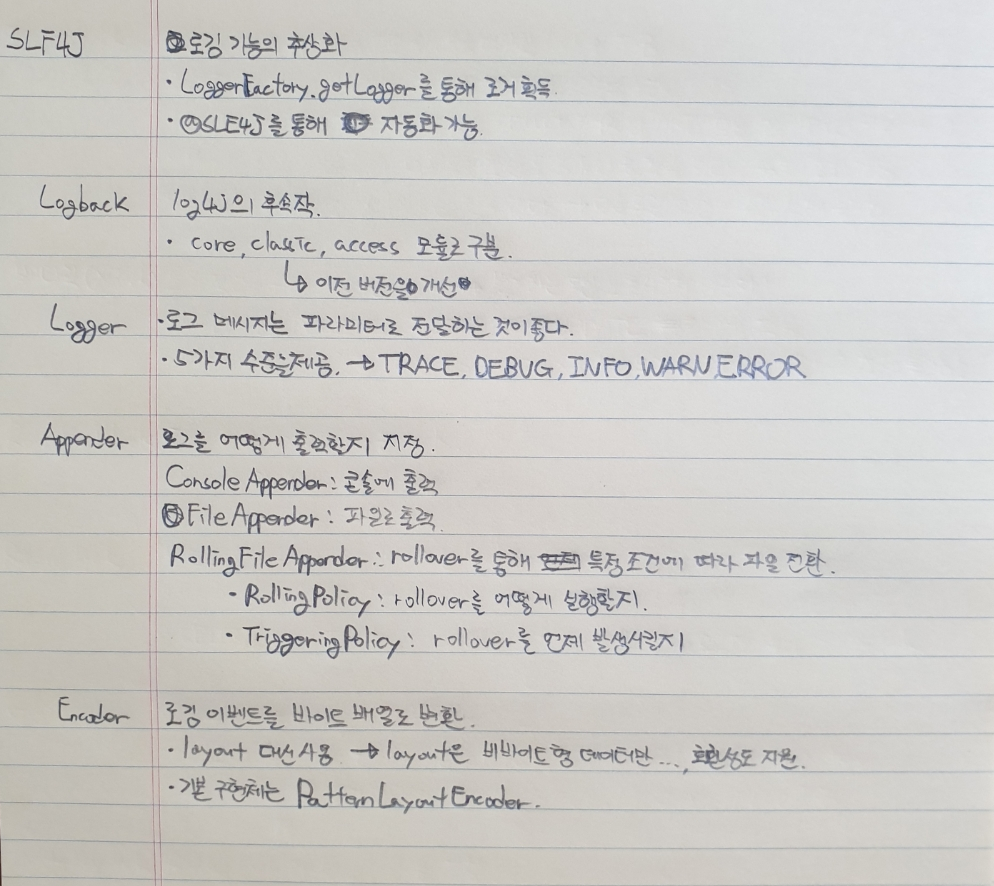 SLF4J 로깅 기능의 추상화
· LoggerFactory.getLogger를 통해 로거 획득.
· SLF4J를 통해 자동화 가능.
Logback log4j의 후속작.
· core, classic, access 모듈로 구분.
↳ 이전 버전을 개선
Logger · 로그 메시지는 파라미터로 전달하는 것이 좋다.
· 5가지 수준을 제공. → TRACE, DEBUG, INFO, WARN, ERROR
Appender 로그를 어떻게 출력할지 지정.
Console Appender : 콘솔에 출력
File Appender : 파일로 출력.
RollingFile Appender : rollover를 통해 특정 조건에 따라 파일 전환.
· RollingPolicy : rollover를 어떻게 실행할지.
· TriggeringPolicy : rollover를 언제 발생시킬지
Encoder 로깅 이벤트를 바이트 배열로 변환.
· layout 대신 사용 → layout은 비바이트형 데이터만 ..., 호환성도 지원.
· 기본 구현체는 PatternLayoutEncoder.